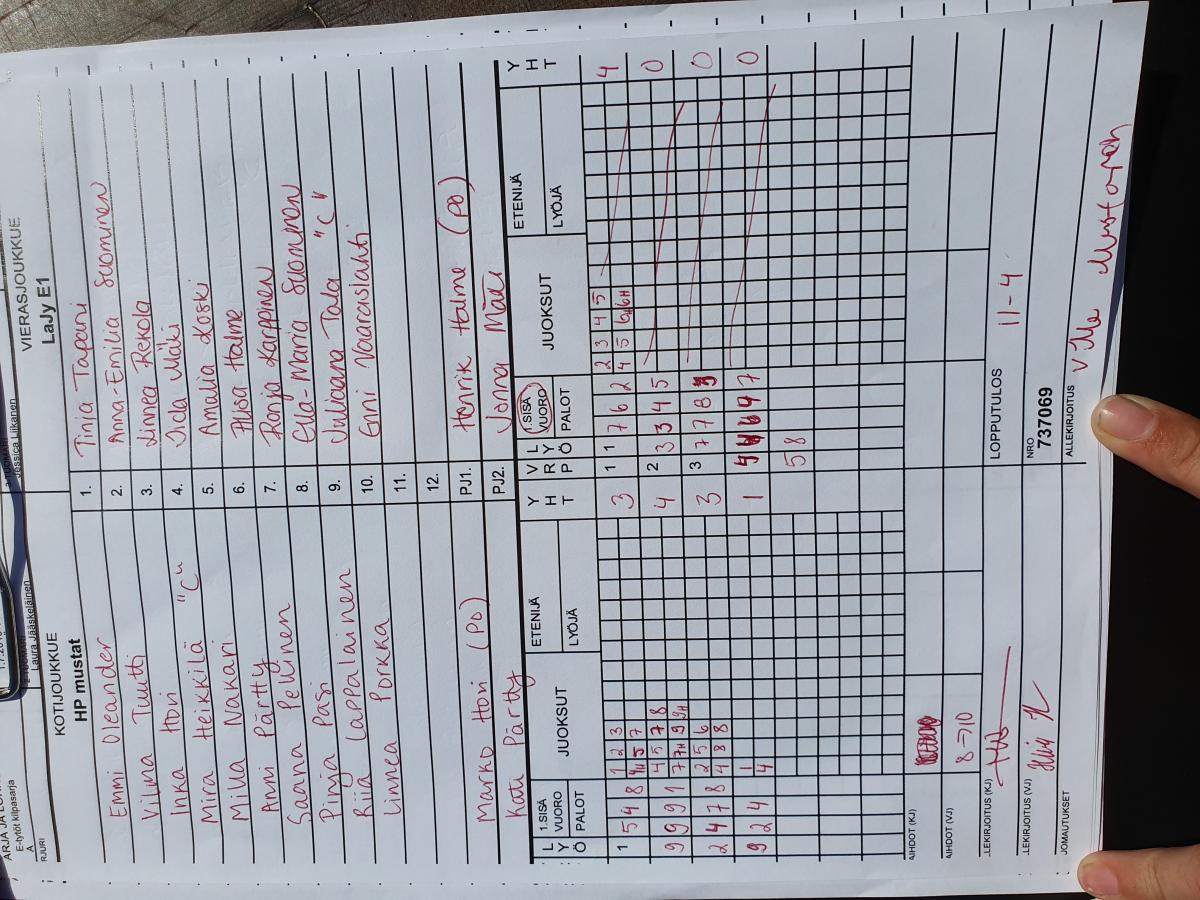 E-tytöt kilpasarja
A
Laura Jääskeläinen
Jessica Liikanen
KOTIJOUKKUE
VIERASJOUKKUE
HP mustat
LaJy E1
Emmi Oleander 1. Tinja Tapani
Vilma Tuutti 2. Anna-Emilia Suominen
Inka Hovi 3. Linnea Rekola
Mira Heikkilä "C" 4. Iida Mäki
Milla Nakari 5. Amalia Koski
Anni Pärtty 6. Alisa Halme
Saana Pellinen 7. Ronja Karppinen
Pinja Pasi 8. Ella-Maria Suominen
Riia Lappalainen 9. Juliaana Tala "C"
Linnea Porkka 10. Enni Vaaraslahti
11.
12.
Marko Hovi (PO) PJ1. Henrik Halme (PO)
Kati Pärtty PJ2. Jonna Mäki
LYÖ 1.SISÄ VUORO PALOT JUOKSUT ETENIJÄ LYÖJÄ YHT VRP LYÖ 1.SISÄ VUORO PALOT JUOKSUT ETENIJÄ LYÖJÄ YHT
1 5 4 8 1 2 3 3 1 1 7 6 2 2 3 4 5 4
5 7 4 5 6H 6H
9 9 9 1 4 5 7 8 4 2 3 3 4 5 0
7 7H 9 9H
2 4 7 8 2 5 6 3 3 7 7 8 9 0
4 8 8
9 2 4 1 1 4 7 0
4
5 8
AIHDOT (KJ)
AIHDOT (VJ) 8→10
LLEKIRJOITUS (KJ) LOPPUTULOS 11-4
LLEKIRJOITUS (VJ) NRO 737069
JOMAUTUKSET ALLEKIRJOITUS Ville